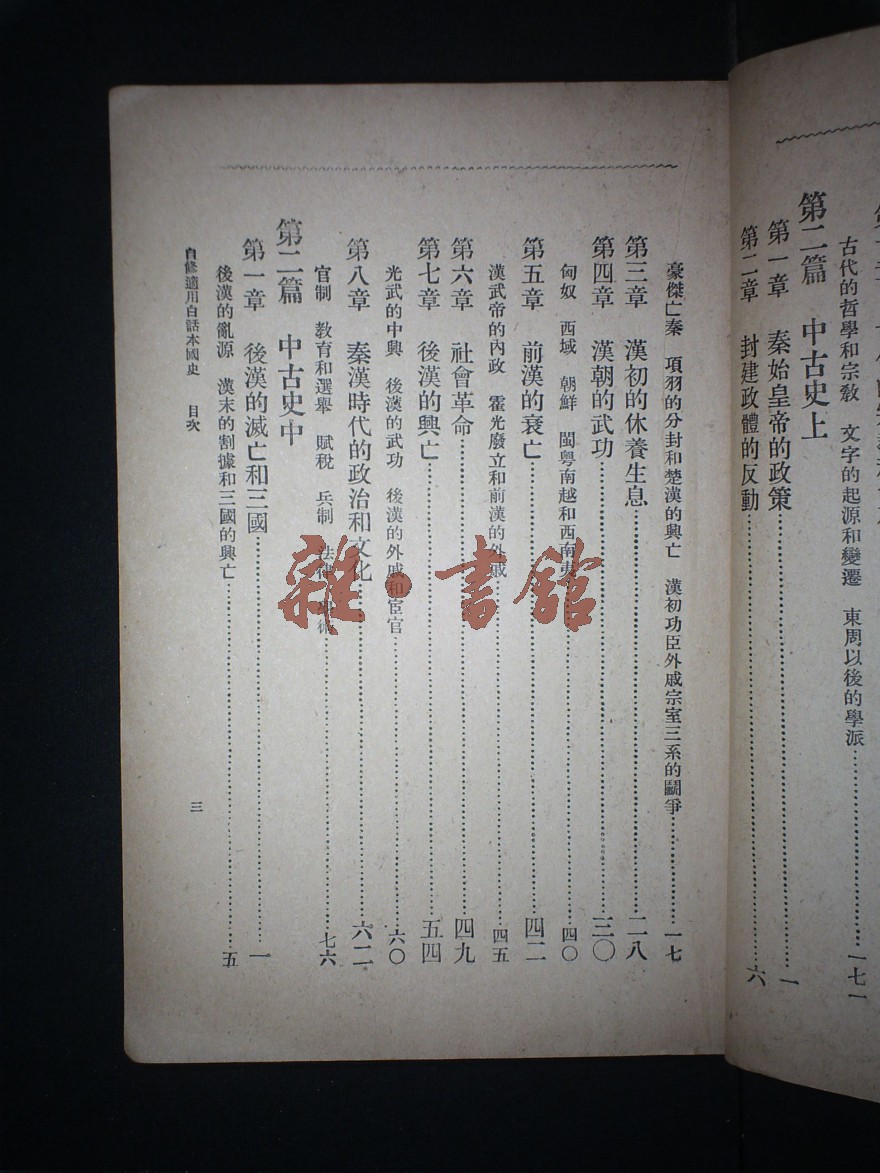 古代的哲學和宗教　文字的起源和變遷　東周以後的學派……一七一
第二篇　中古史上
第一章　秦始皇帝的政策……一
第二章　封建政體的反動……六
豪傑亡秦　項羽的分封和楚漢的興亡　漢初功臣外戚宗室三系的鬭爭……一七
第三章　漢初的休養生息……二八
第四章　漢朝的武功……三〇
匈奴　西域　朝鮮　閩粵南越和西南夷……四〇
第五章　前漢的衰亡……四二
漢武帝的內政　霍光廢立和前漢的外戚……四五
第六章　社會革命……四九
第七章　後漢的興亡……五四
光武的中興　後漢的武功　後漢的外戚和宦官……六〇
第八章　秦漢時代的政治和文化……六二
官制　教育和選舉　賦稅　兵制　法律　學術……七六
第二篇　中古史中
第一章　後漢的滅亡和三國……一
後漢的亂源　漢末的割據和三國的興亡……五
自修適用白話本國史　目次
三
雜·書館